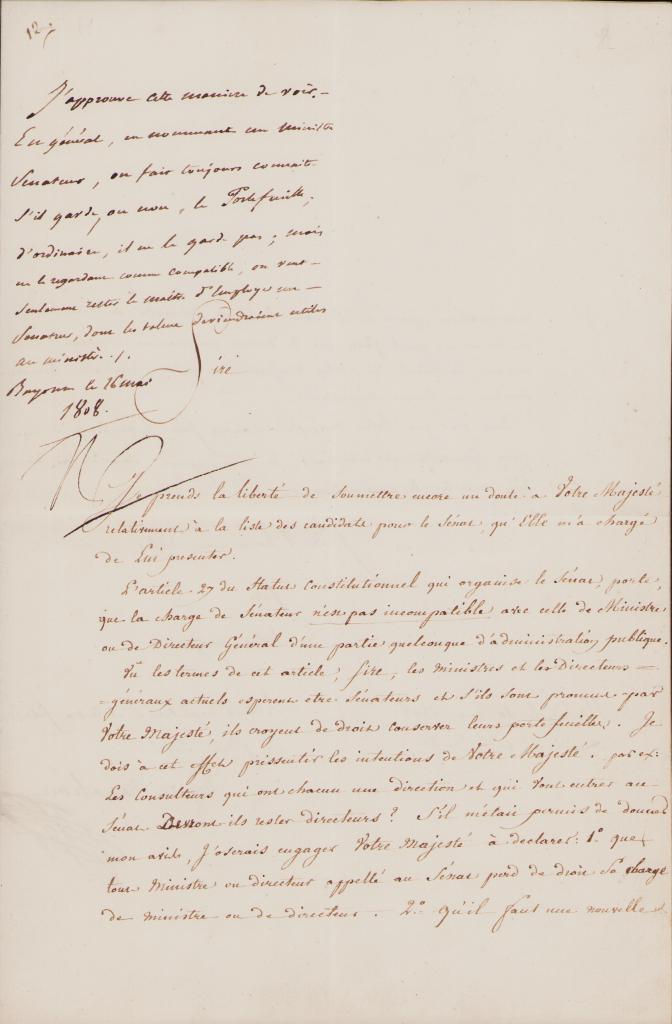 12.
J'approuve cette maniere de voir. —
En général, en nommant un ministre
Senateur, on fait toujours connait
s'il garde, ou non, le Portefeuille;
d'ordinaire, il ne le garde pas; mais
en le regardant comme compatible, on veut —
seulement rester le maître d'employer un —
Senateur, dont les talens deviendraient utiles
au ministère ./.
Bayonne le 26 mai
1808.
N
Sire
Je prends la liberté de soumettre encore un doute à Votre Majesté
relativement à la liste des candidats pour le Sénat, qu'Elle m'a chargé
de Lui presenter.
L'article 27 du Statut Constitutionnel qui organise le Sénat, porte,
que la charge de Sénateur n'est pas incompatible avec celle de Ministre
ou de Directeur Général d'une partie quelconque d'administration publique.
Vu les termes de cet article, Sire, les Ministres et les Directeurs —
— généraux actuels esperent etre Sénateurs et s'ils sont promus par
Votre Majesté, ils croyent de droit conserver leurs portefeuilles. Je
dois à cet effet pressentir les intentions de Votre Majesté. par ex:
Les Consulteurs qui ont chacun une direction et qui vont entrer au
Sénat Devront ils rester directeurs? S'il m'était permis de donner
mon avis, j'oserais engager Votre Majesté à declarer: 1.º que
tout Ministre ou directeur appellé au Sénat perd de droit sa charge
de ministre ou de directeur. 2.º qu'il faut une nouvelle